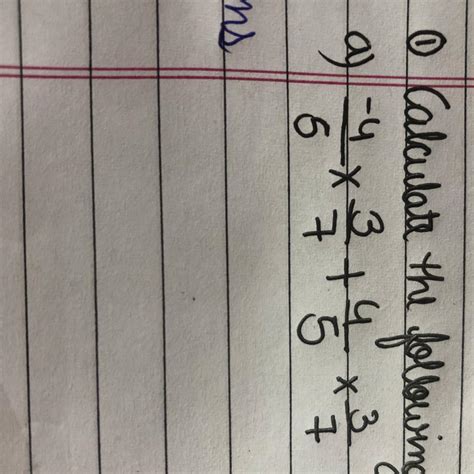 ① Calculate the following
a) -4/6 × 3/7 + 4/5 × 3/7
ns